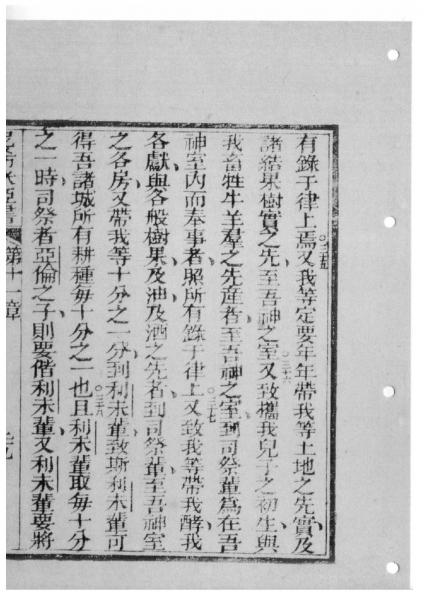 有錄于律上焉又我等定要年年帶我等土地之先實及
諸結果樹實之先至吾神之室又致攜我兒子之初生與
我畜牲牛羊羣之先產者至吾神之室到司祭輩為在吾
神室內而奉事者照所有錄于律上又致我等帶我酵我
各獻與各般樹果及油及酒之先者到司祭輩至吾神室
之各房又帶我等十分之一分到利未輩致斯利未輩可
得吾諸城所有耕種每十分之一也且利未輩取每十分
之一時司祭者亞倫之子則要偕利未輩又利未輩要將
第十一章